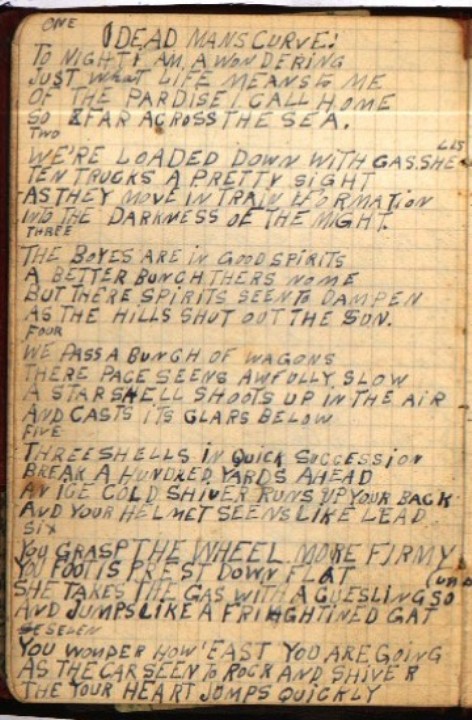 ONE
DEAD MANS CURVE!
TO NIGHT I AM A WONDERING
JUST WhaT LIFE MEANS to ME
OF THE PARDISE I CALL HOME
SO FAR ACROSS THE SEA.
TWO
WE'RE LOADED DOWN WITH GAS. SHELLS
TEN TRUCKS A PRETTY SIGHT
AS THEY MOVE IN TRAIN FORMATION
INTO THE DARKNESS OF THE NIGHT.
THREE
THE BOYES ARE IN GOOD SPIRITS
A BETTER BUNCH THERS NONE
BUT THERE SPIRITS SEEN TO DAMPEN
AS THE HILLS SHUT OUT THE SUN.
FOUR
WE PASS A BUNCH OF WAGONS
THERE PACE SEENS AWFULLY SLOW
A STAR SHELL SHOOTS UP IN THE AIR
AND CASTS ITS GLARS BELOW
FIVE
THREE SHELLS IN QUICK SUCCESSION
BREAK A HUNDRED YARDS AHEAD
AN ICE COLD SHIVER RUNS UP YOUR BACK
AND YOUR HELMET SEENS LIKE LEAD
SIX
YOU GRASP THE WHEEL MORE FIRMY
YOU FOOT IS PREST DOWN FLAT
SHE TAKES THE GAS WITH A GUESLING SO
AND JUMPS LIKE A FRIHGHTINED CAT
SEVEN
YOU WONDER HOW FAST YOU ARE GOING
AS THE CAR SEEN TO ROCK AND SHIVER
THE YOUR HEART JUMPS QUICKLY